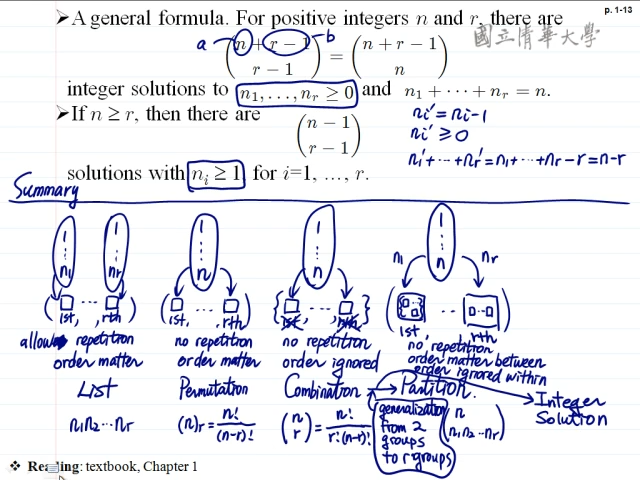 p. 1-13
➢A general formula. For positive integers n and r, there are
a (n + r − 1 / r − 1) b = (n + r − 1 / n)
國立清華大學
integer solutions to n1, . . . , nr ≥ 0 and n1 + · · · + nr = n.
➢If n ≥ r, then there are
(n − 1 / r − 1)
solutions with ni ≥ 1, for i=1, ..., r.
ni' = ni-1
ni' ≥ 0
n1' + ··· + nr' = n1 + ··· + nr - r = n-r
Summary
1 ⋮ n1 1 ⋮ nr
( □ ··· □ )
1st, , rth
allow repetition
order matter
LIST
n1n2 ··· nr
1 ⋮ n
( □ ··· □ )
1st, , rth
no repetition
order matter
Permutation
(n)r = n! / (n-r)!
1 ⋮ n
{ □ ··· □ }
1st, , rth
no repetition
order ignored
Combination
(n / r) = n! / r!(n-r)!
1 ⋮ n
n1 nr
( ·· □··□ )
1st , rth
no repetition
order matter between
order ignored within
Partition
generalization
from 2
groups
to r groups
(n / n1 n2 ··· nr)
Integer
Solution
❖ Reading: textbook, Chapter 1